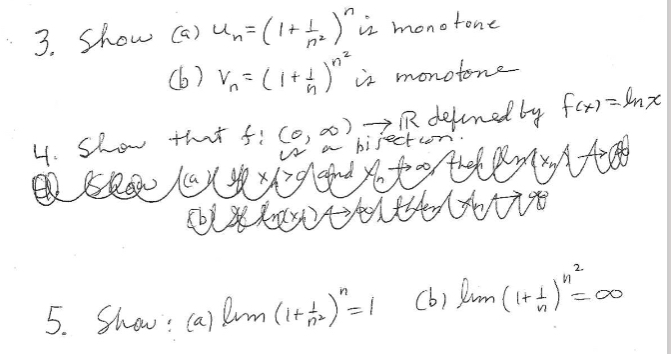 3. Show (a) u_n = (1 + 1/n²)^n is monotone
(b) v_n = (1 + 1/n)^{n²} is monotone
4. Show that f: (0, ∞) → ℝ defined by f(x) = ln x
is a bijection.
5. Show: (a) lim (1 + 1/n²)^n = 1 (b) lim (1 + 1/n)^{n²} = ∞